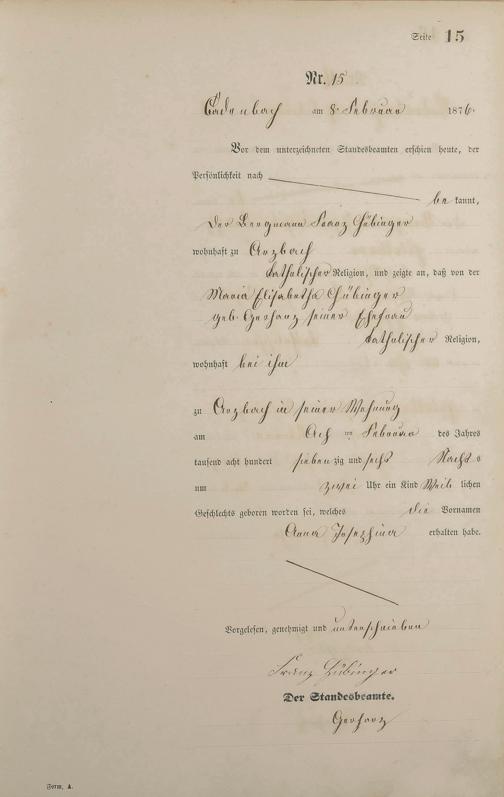 Seite 15
Nr. 15
Cadenbach am 8 Februar 1876.
Vor dem unterzeichneten Standesbeamten erschien heute, der
Persönlichkeit nach
be kannt,
der Bergmann Franz Hübinger
wohnhaft zu Arzbach
katholischer Religion, und zeigte an, daß von der
Maria Elisabetha Hübinger
geb. Gerharz seiner Ehefrau
katholischer Religion,
wohnhaft bei ihm
zu Arzbach in seiner Wohnung
am Ach ten Februar des Jahres
tausend acht hundert sieben zig und sechs Nacht s
um zwei Uhr ein Kind Weib lichen
Geschlechts geboren worden sei, welches die Vornamen
Anna Josephina erhalten habe.
Vorgelesen, genehmigt und unterschrieben
Franz Hübinger
Der Standesbeamte.
Gerharz
Form. A.